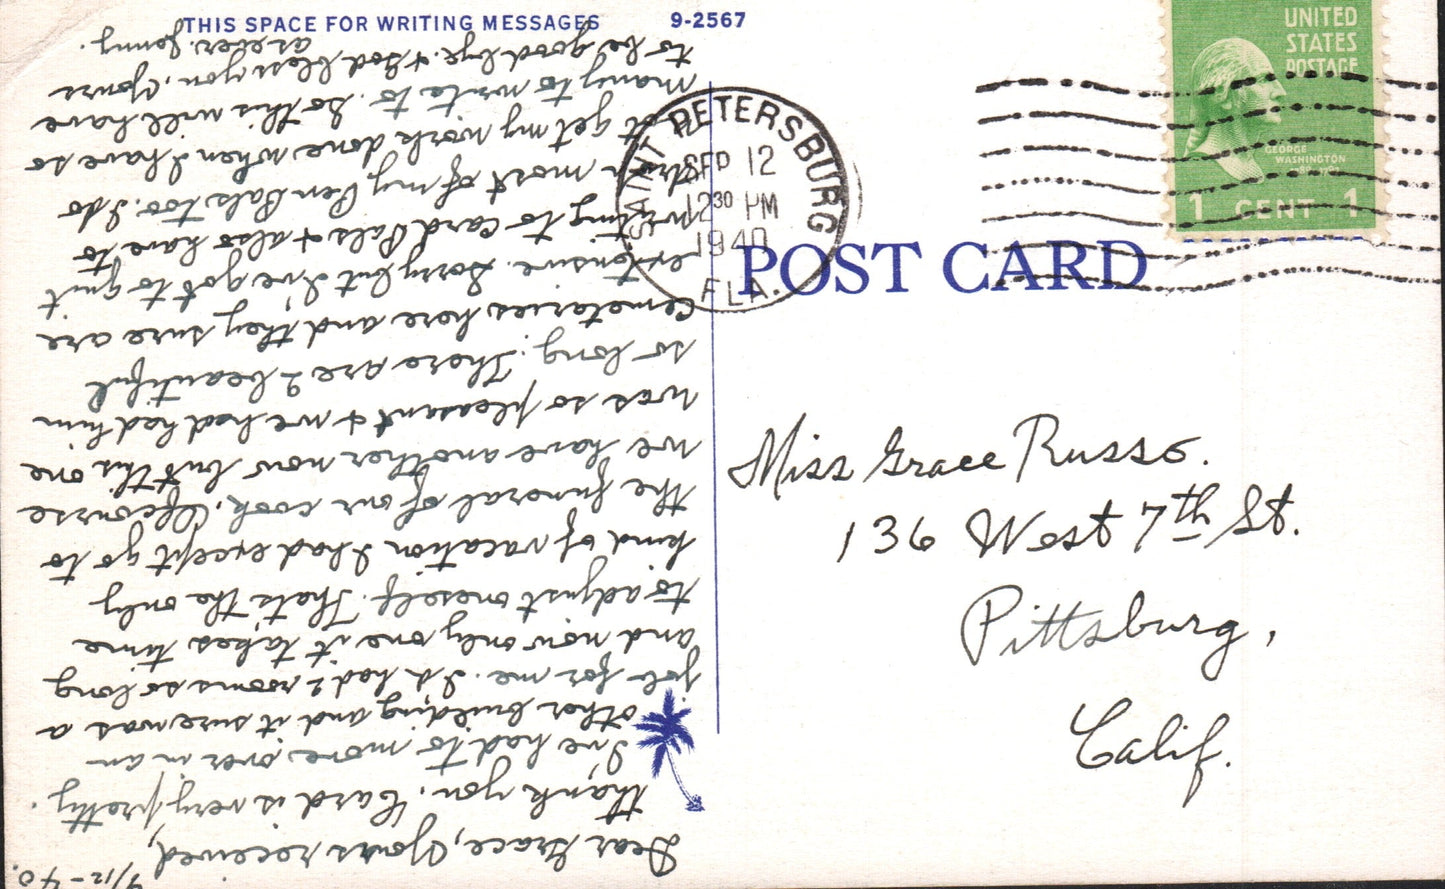 THIS SPACE FOR WRITING MESSAGES
9-2567
9/12-40.
Dear Grace, Yours received,
thank you. Card is very pretty.
I've had to move over in an
other building and it sure was a
job for me. I'd had 2 rooms so long
and now only one it takes time
to adjust oneself. That's the only
kind of vacation I had except go to
the funeral of our cook. Ofcourse
we have another now but this one
was so pleasant & we had had him
so long. There are 2 beautiful
Cemetaries here and they sure are
extensive. Sorry but I've got to quit
writing to Card Pals & also have to
most of my Pen Pals too. I do
get my work done when I have so
many to write to. So this will have
to be good bye. & God bless you. Yours
as ever. Jenny.
SAINT PETERSBURG
SEP 12
12 30 PM
1940
FLA.
UNITED
STATES
POSTAGE
GEORGE
WASHINGTON
1 CENT 1
POST CARD
Miss Grace Russo.
136 West 7th St.
Pittsburg,
Calif.